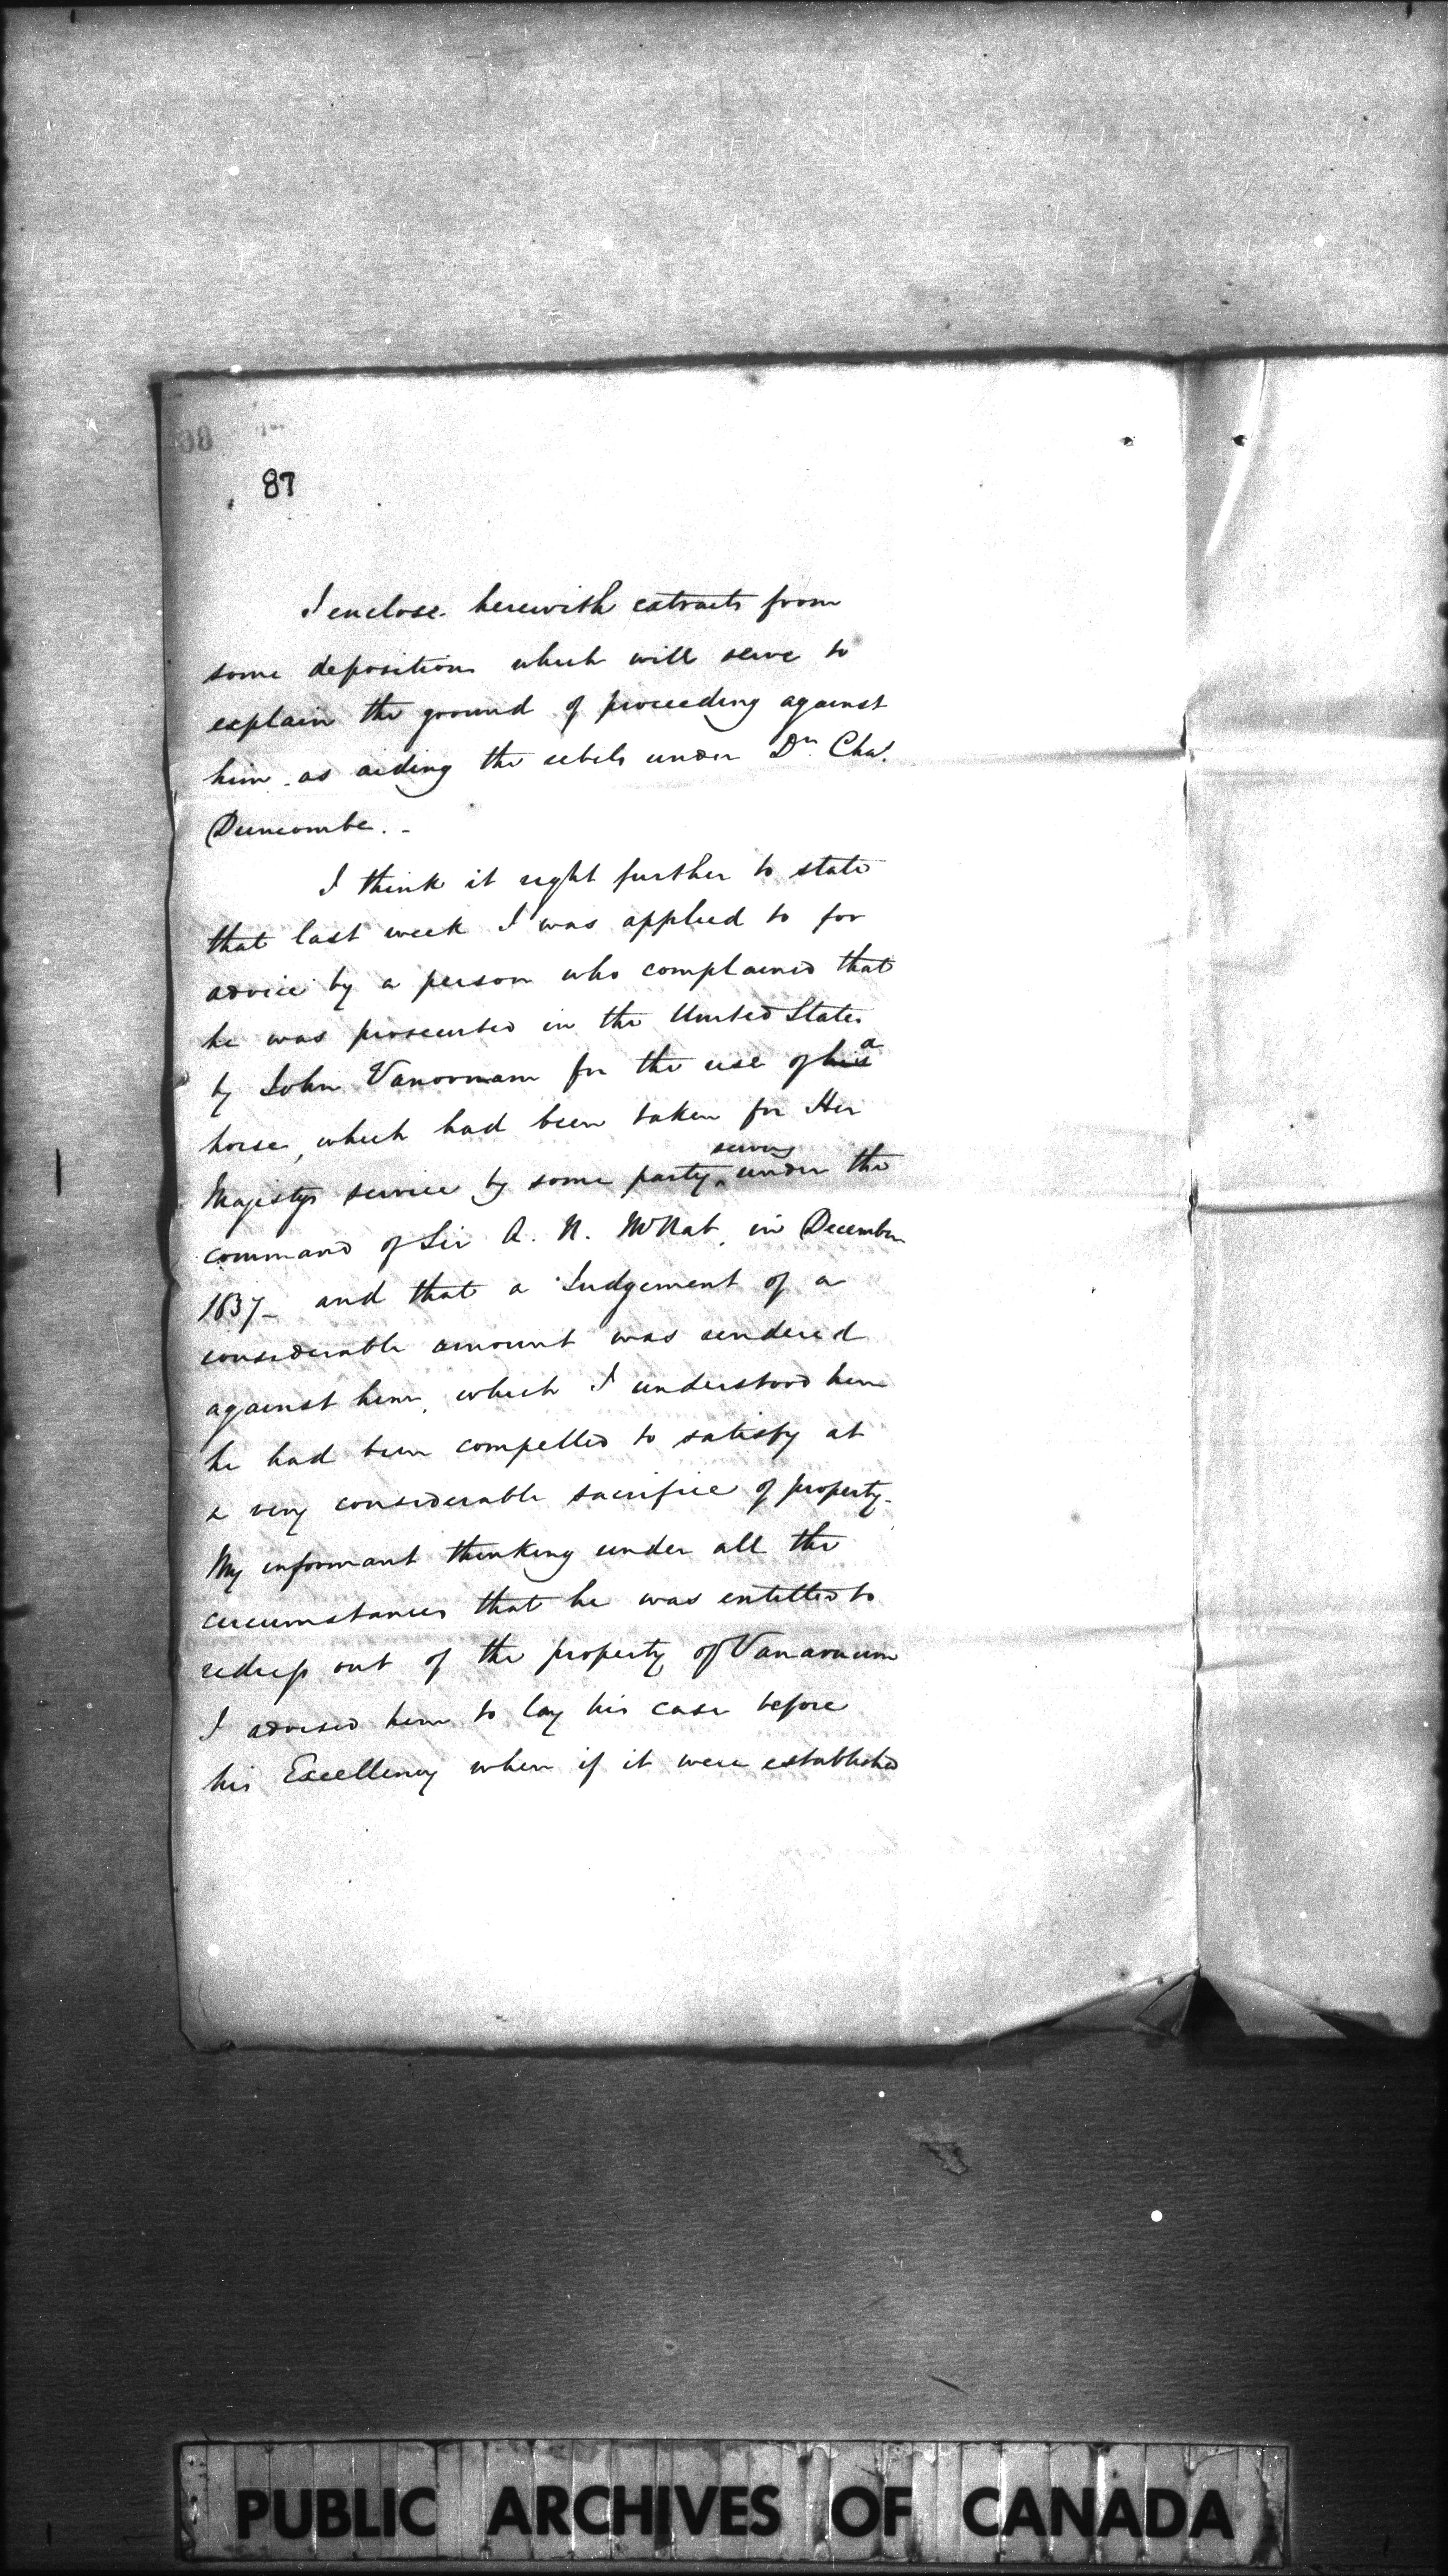 87
I enclose herewith extracts from
some depositions which will serve to
explain the ground of proceeding against
him as aiding the rebels under Dr. Chas.
Duncombe. -
I think it right further to state
that last week I was applied to for
advice by a person who complained that
he was prosecuted in the United States
by John Vanornam for the use of his a
horse, which had been taken for Her
Majestys service by some party serving under the
command of Sir A. N. McNab, in December
1837 - and that a Judgement of a
considerable amount was rendered
against him, which I understood him
he had been compelled to satisfy at
a very considerable sacrifice of property -
My informant thinking under all the
circumstances that he was entitled to
redress out of the property of Vanarnam
I advised him to lay his case before
his Excellency when if it were established
PUBLIC ARCHIVES OF CANADA